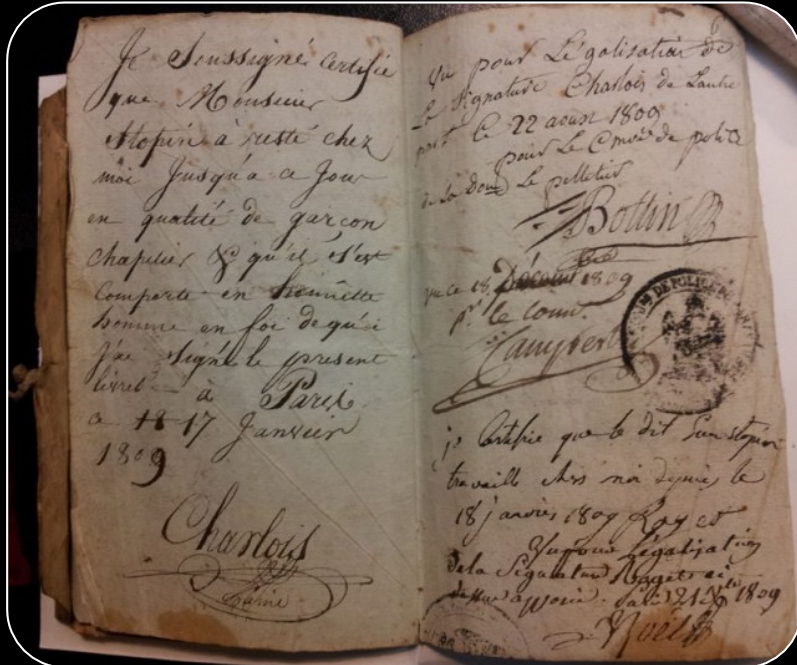 Je Soussigné certifie
que Monsieur
Stopin à resté chez
moi Jusqu'a ce Jour
en qualité de garçon
chapelier & qu'il s'est
comporté en honnette
homme en foi de quoi
J'ai signé le présent
livret à Paris
ce 18 17 Janvier
1809
Charlois
Vu pour Légalisation de
la Signature Charlois de l'autre
part Ce 22 aout 1809
pour Le Cmre de police
de la Don Le pelletier
Bottin
vu ce 18 1809
pr. le com.
DE POLICE
je Certifie que le dit
travaille chés moi depuis le
18 janvier 1809
Vu pour Légalisation
de la Signature ci
dessus apposée. Paris 21 1809
Noël